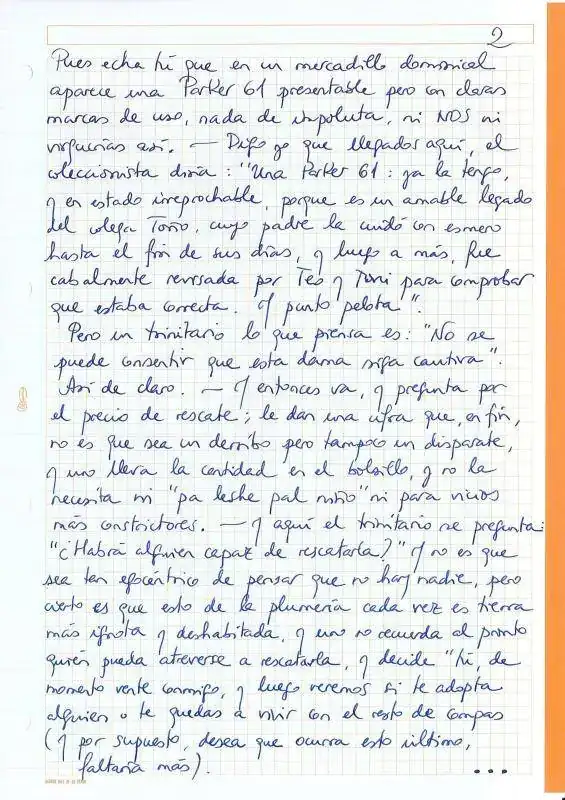 2
Pues echa tú que en un mercadillo dominical
aparece una Parker 61 presentable pero con claras
marcas de uso, nada de impoluta, ni NOS ni
virguerías así. — Digo yo que llegados aquí, el
coleccionista diría: "Una Parker 61: ya la tengo,
y en estado irreprochable, porque es un amable legado
del colega Toño, cuyo padre la cuidó con esmero
hasta el fin de sus días, y luego a más, fue
cabalmente revisada por Teo y Toni para comprobar
que estaba correcta. Y punto pelota".
Pero un trinitario lo que piensa es: "No se
puede consentir que esta dama siga cautiva".
Así de claro. — Y entonces va, y pregunta por
el precio de rescate; le dan una cifra que, en fin,
no es que sea un derribo pero tampoco un disparate,
y uno lleva la cantidad en el bolsillo, y no la
necesita ni "pa leshe pal niño" ni para vicios
más constrictores. — Y aquí el trinitario se pregunta:
"¿Habrá alguien capaz de rescatarla?" Y no es que
sea tan egocéntrico de pensar que no hay nadie, pero
cierto es que esto de la plumería cada vez es tierra
más ignota y deshabitada, y uno no recuerda al pronto
quién pueda atreverse a rescatarla, y decide "tú, de
momento vente conmigo, y luego veremos si te adopta
alguien o te quedas a vivir con el resto de compas
(y por supuesto, desea que ocurra esto último,
faltaría más). ...